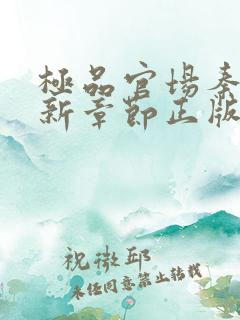 極品官場秦
新章節正版
祝微邱
未经同意禁止转载